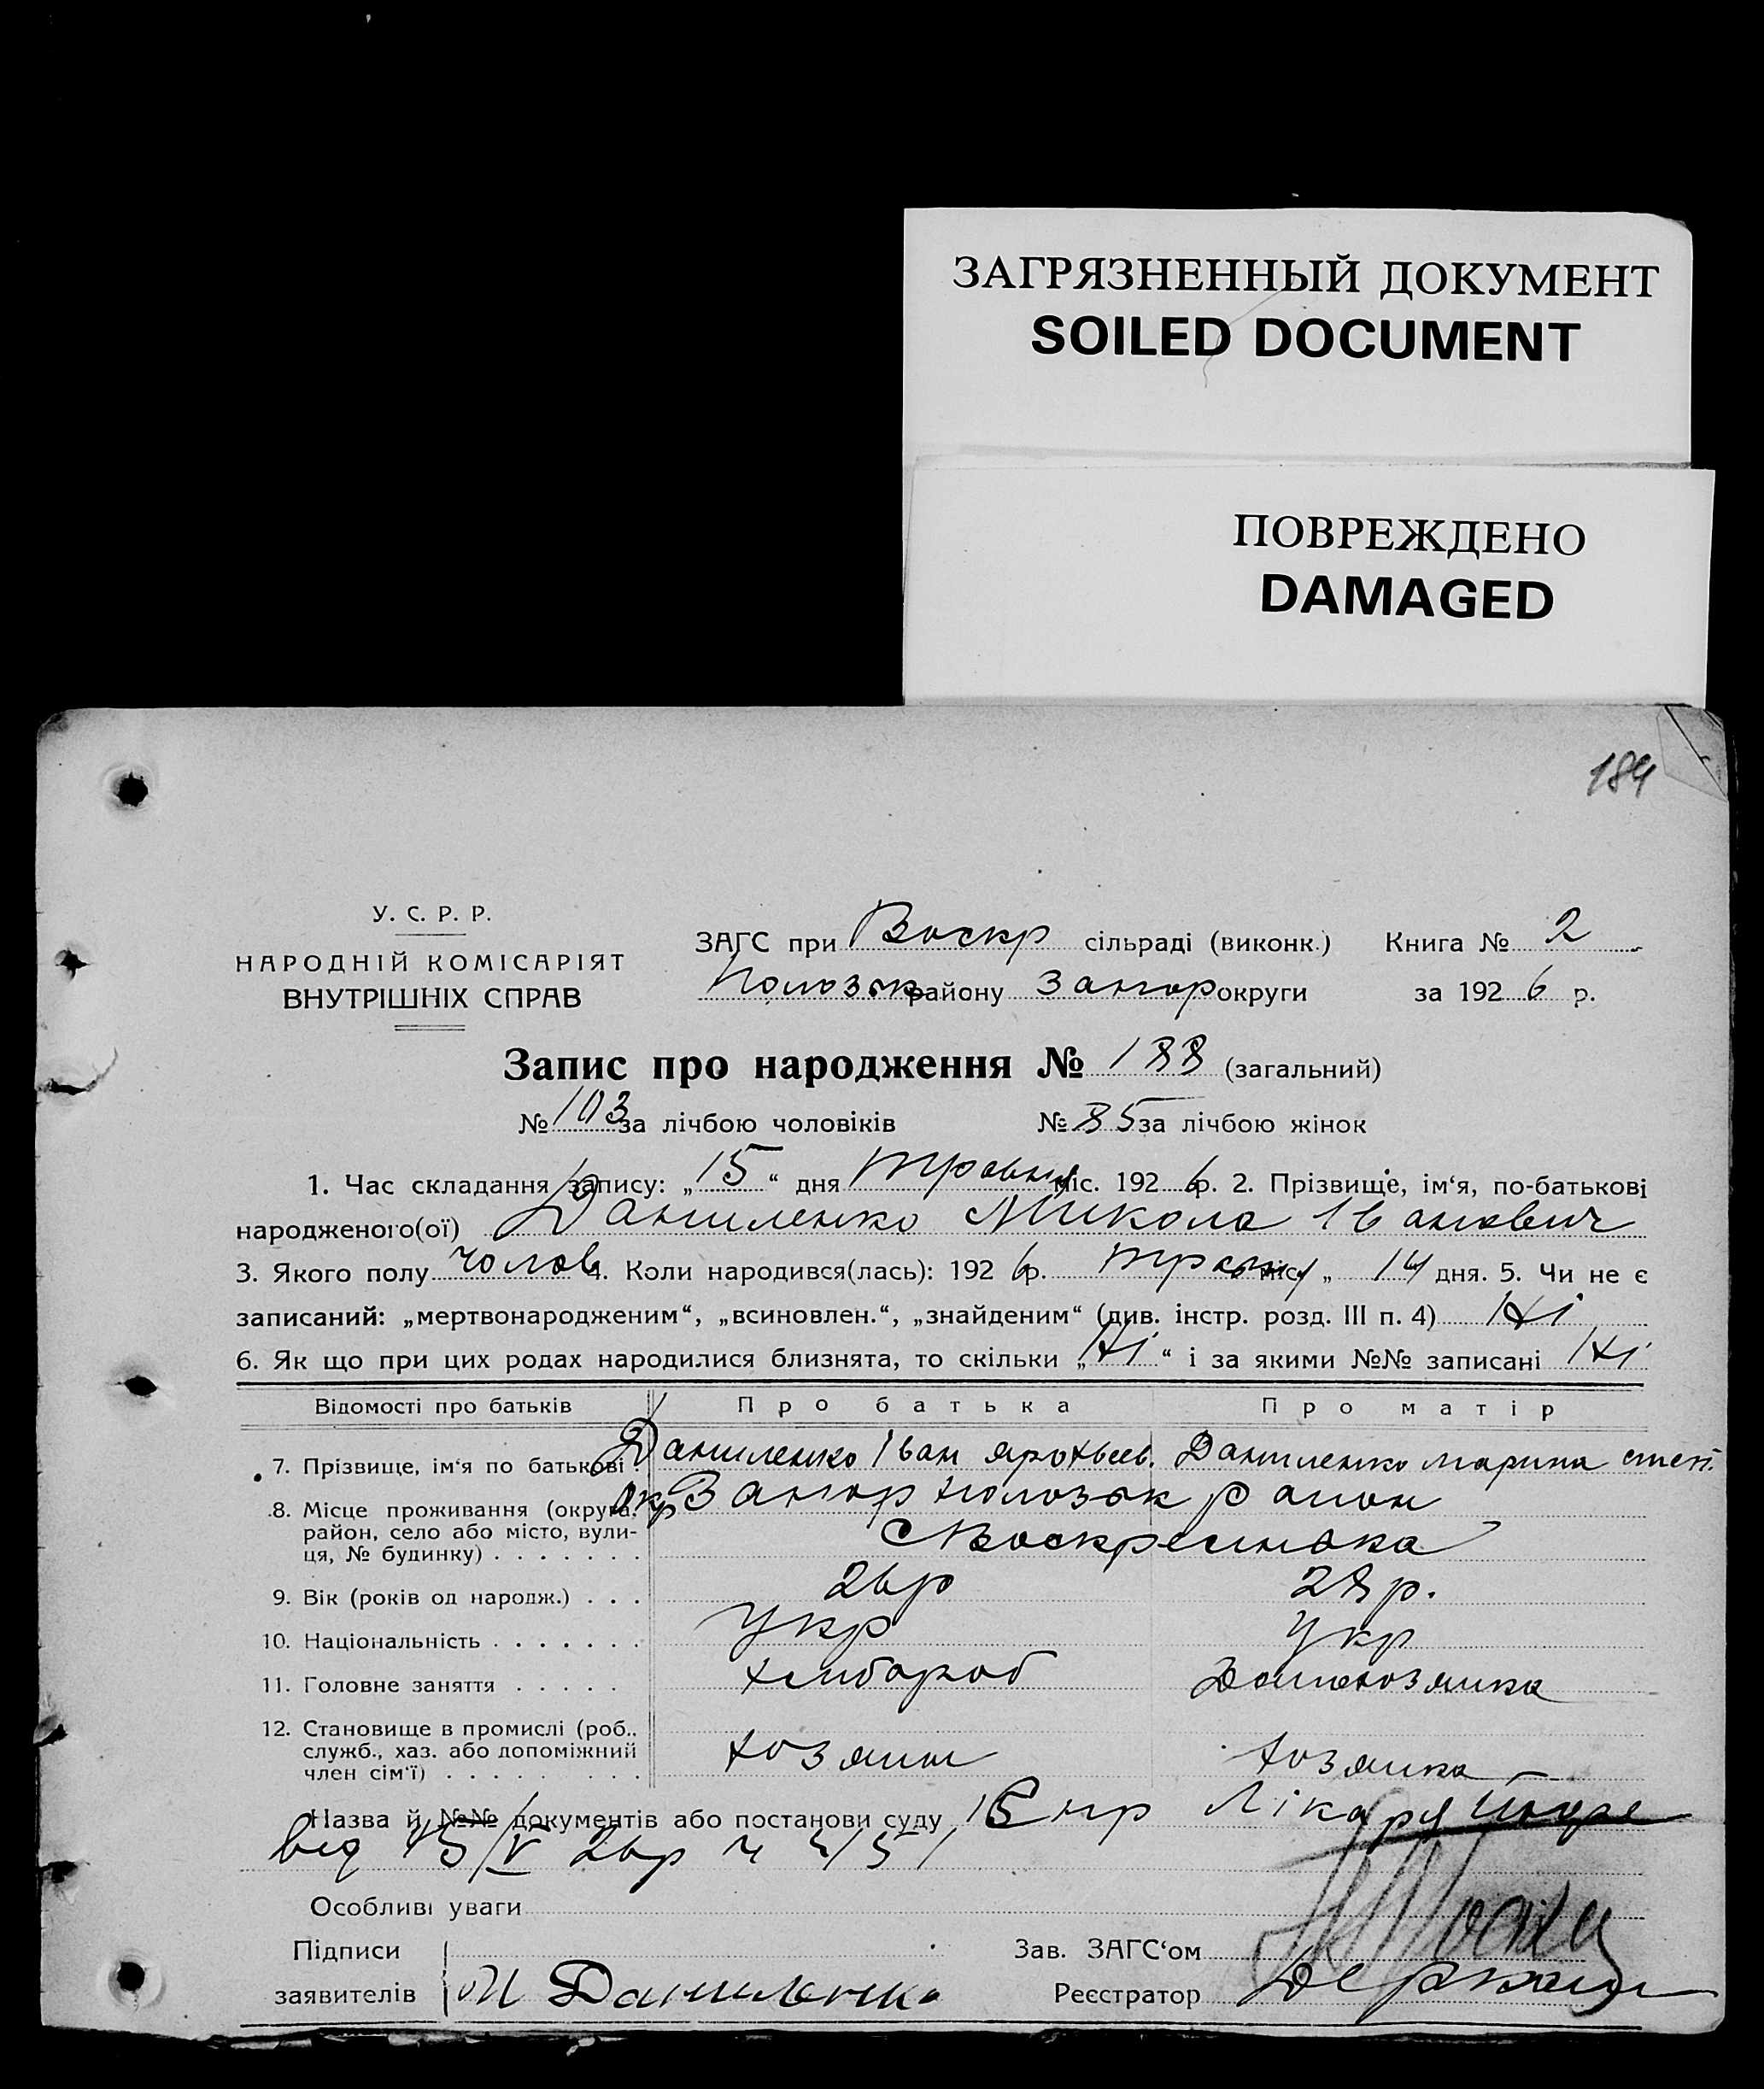 ЗАГРЯЗНЕННЫЙ ДОКУМЕНТ
SOILED DOCUMENT
ПОВРЕЖДЕНО
DAMAGED
184
У. С. Р. Р.
НАРОДНІЙ КОМІСАРІЯТ
ВНУТРІШНІХ СПРАВ
ЗАГС при Воскр сільраді (виконк.) Книга № 2
району Запор округи за 1926 р.
Запис про народження № 188 (загальний)
№ 103 за лічбою чоловіків № 85 за лічбою жінок
1. Час складання запису: „15“ дня Травня міс. 1926 р. 2. Прізвище, ім‘я, по-батькові
народженого(ої) Даниленко Микола Іванович
3. Якого полу чолов 4. Коли народився(лась): 1926 р. Травня міс. „ 14 дня. 5. Чи не є
записаний: „мертвонародженим“, „всиновлен.“, „знайденим“ (див. інстр. розд. III п. 4) Ні
6. Як що при цих родах народилися близнята, то скільки „Ні“ і за якими №№ записані Ні
Відомості про батьків Про батька Про матір
7. Прізвище, ім‘я по батькові. Даниленко Іван Даниленко Марина степ.
8. Місце проживання (округа, район, село або місто, вули-
ця, № будинку) . . . . . . . Окр Запор район
с Воскресинька
9. Вік (років од народж.) . . . 26р 28р.
10. Національність . . . . . . . Укр Укр
11. Головне заняття . . . . . хлибороб Домохозяика
12. Становище в промислі (роб.,
служб., хаз. або допоміжний
член сім‘ї) . . . . . . . . . хозяин хозяика
Назва й №№ документів або постанови суду Лікаря
від 15/V 26р
Особливі уваги
Підписи Зав. ЗАГС‘ом
заявителів Даниленко Реєстратор Деркач